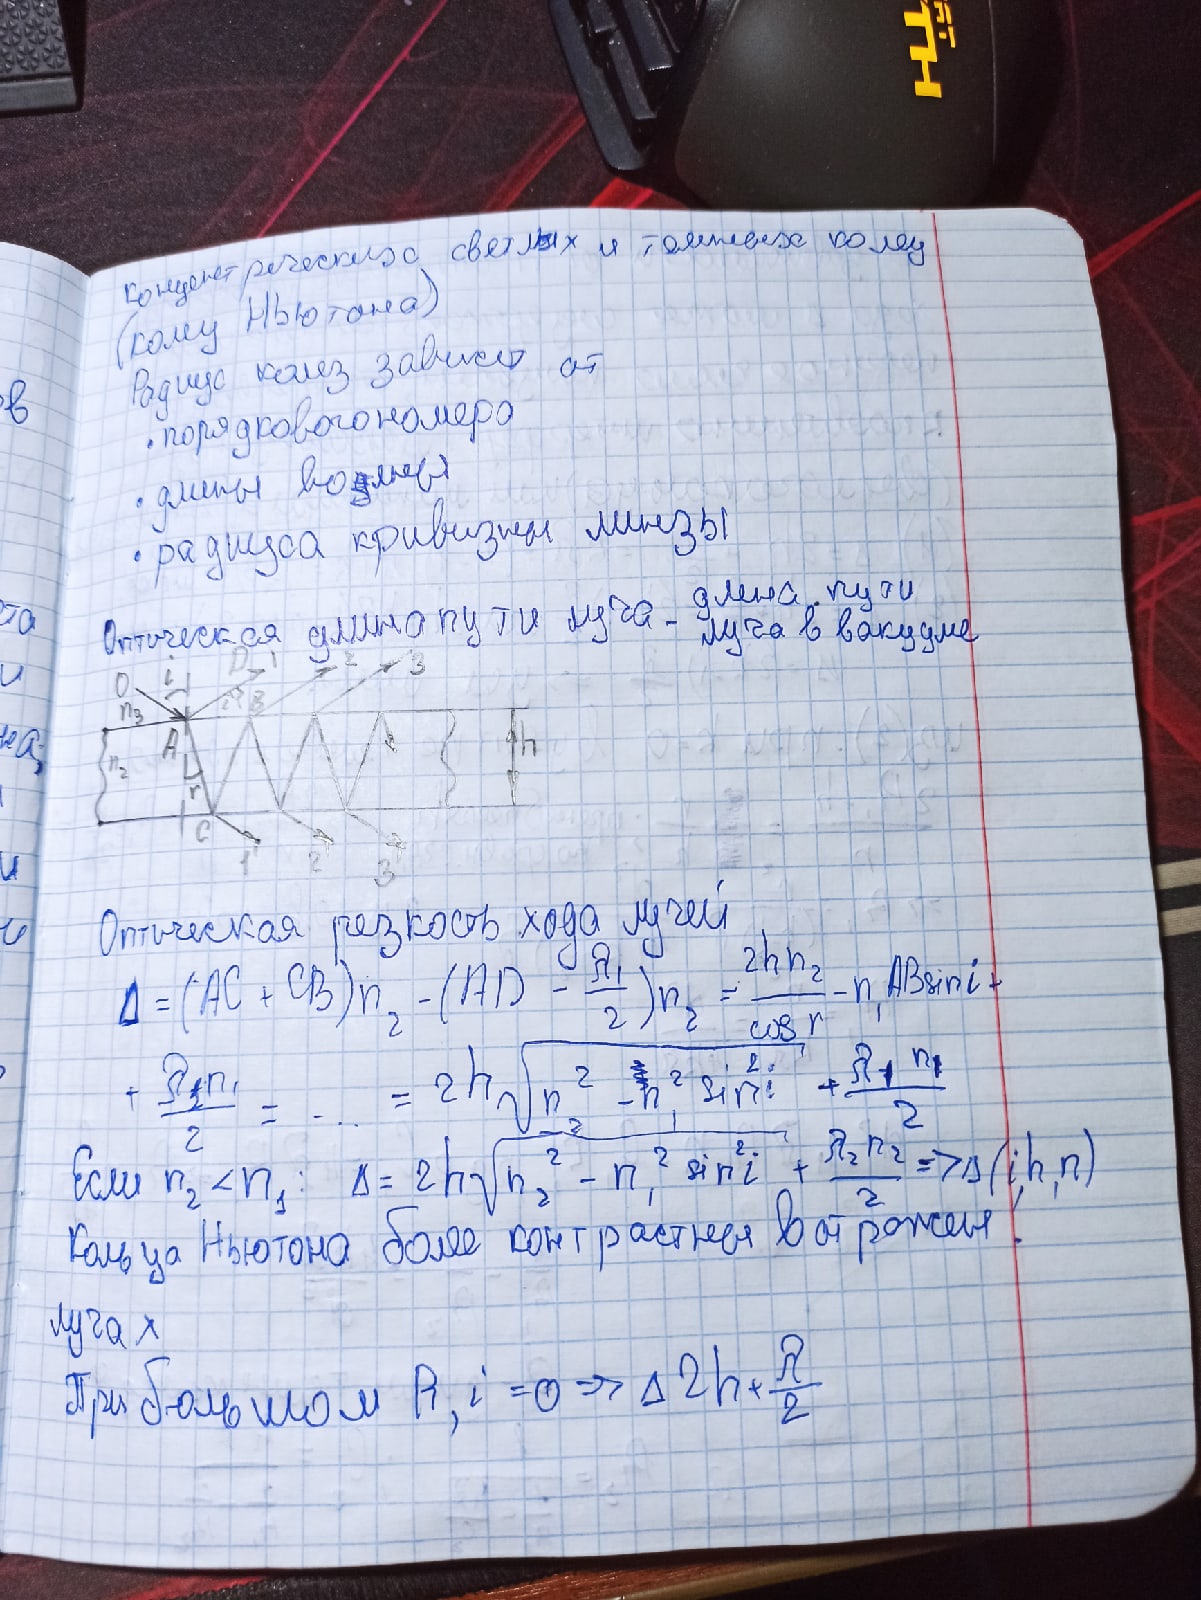 концентрических светлых и темных колец
(колец Ньютона)
Радиус колез зависит от
· порядкового номера
· длины волны
· радиуса кривизны линзы
Оптическая длина пути луча - длина пути
луча в вакууме
O i D 1 2 3
n₃ i B
A h
n₂ r
C
1' 2' 3'
Оптическая резкость хода лучей
Δ = (AC + CB)n₂ - (AD - λ₁/2)n₂ = 2hn₂/cos r - n₁ABsin i +
+ λ₁n₁/2 = ... = 2h√(n₂² - n₁² sin²i) + λ₁n₁/2
Если n₂ < n₁: Δ = 2h√(n₂² - n₁² sin²i) + λ₂n₂/2 => Δ(i,h,n)
Кольца Ньютона более контрастные в отражен.
лучах
При большом R, i = 0 => Δ 2h + λ/2